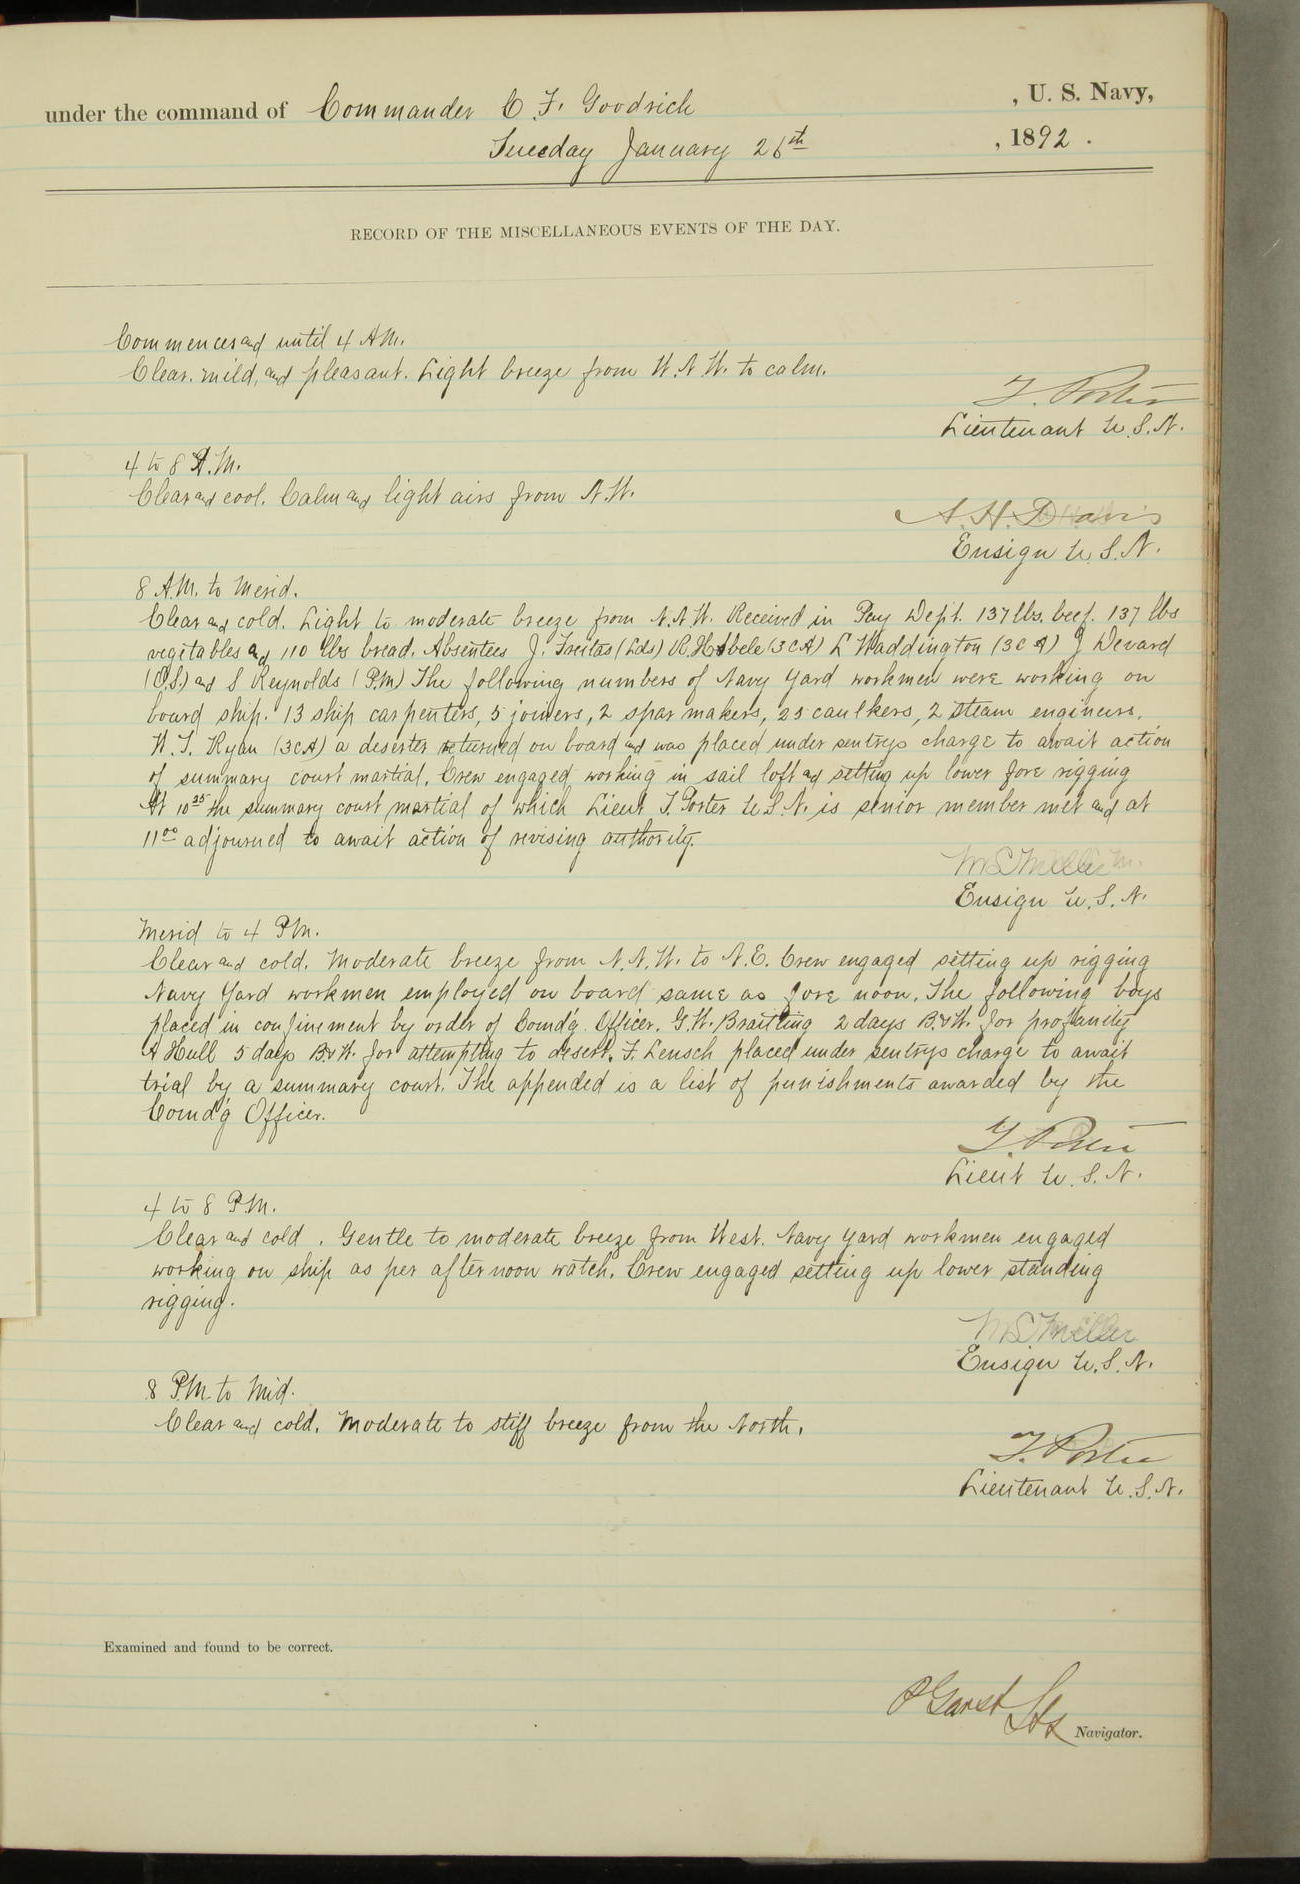 under the command of Commander C. F. Goodrich , U. S. Navy,
Tuesday January 26th , 1892 .
RECORD OF THE MISCELLANEOUS EVENTS OF THE DAY.
Commences and until 4 A.M.
Clear, mild, and pleasant. Light breeze from W.N.W. to calm.
T. Porter
Lieutenant U.S.N.
4 to 8 A.M.
Clear and cool. Calm and light airs from N.W.
A. H. Davis
Ensign U.S.N.
8 A.M. to Merid.
Clear and cold. Light to moderate breeze from N.N.W. Received in Pay Dept. 137 lbs. beef. 137 lbs
vegetables and 110 lbs bread. Absentees J. Freitas (Lds) R. (3CA) L Waddington (3CA) J Devard
(O.S.) and S Reynolds (P.M) The following numbers of Navy Yard workmen were working on
board ship. 13 ship carpenters, 5 joiners, 2 spar makers, 25 caulkers, 2 steam engineers.
W. T. Ryan (3CA) a deserter returned on board and was placed under sentrys charge to await action
of summary court martial. Crew engaged working in sail loft and setting up lower fore rigging
At 10 25 the summary court martial of which Lieut T. Porter U.S.N. is senior member met and at
11 00 adjourned to await action of revising authority.
Ensign U.S.N.
Merid to 4 P.M.
Clear and cold. Moderate breeze from N.N.W. to N.E. Crew engaged setting up rigging
Navy Yard workmen employed on board same as fore noon. The following boys
placed in confinement by order of Comd'g Officer. G.W. Braitling 2 days B.&W. for profanity
A Hull 5 days B.&W. for attempting to desert. F. Lensch placed under sentrys charge to await
trial by a summary court. The appended is a list of punishments awarded by the
Comd'g Officer.
T. Porter
Lieut U.S.N.
4 to 8 P.M.
Clear and cold . Gentle to moderate breeze from West. Navy Yard workmen engaged
working on ship as per afternoon watch. Crew engaged setting up lower standing
rigging.
M S Miller
Ensign U.S.N.
8 P.M. to Mid.
Clear and cold. Moderate to stiff breeze from the North.
T. Porter
Lieutenant U.S.N.
Examined and found to be correct.
P Garst
Navigator.